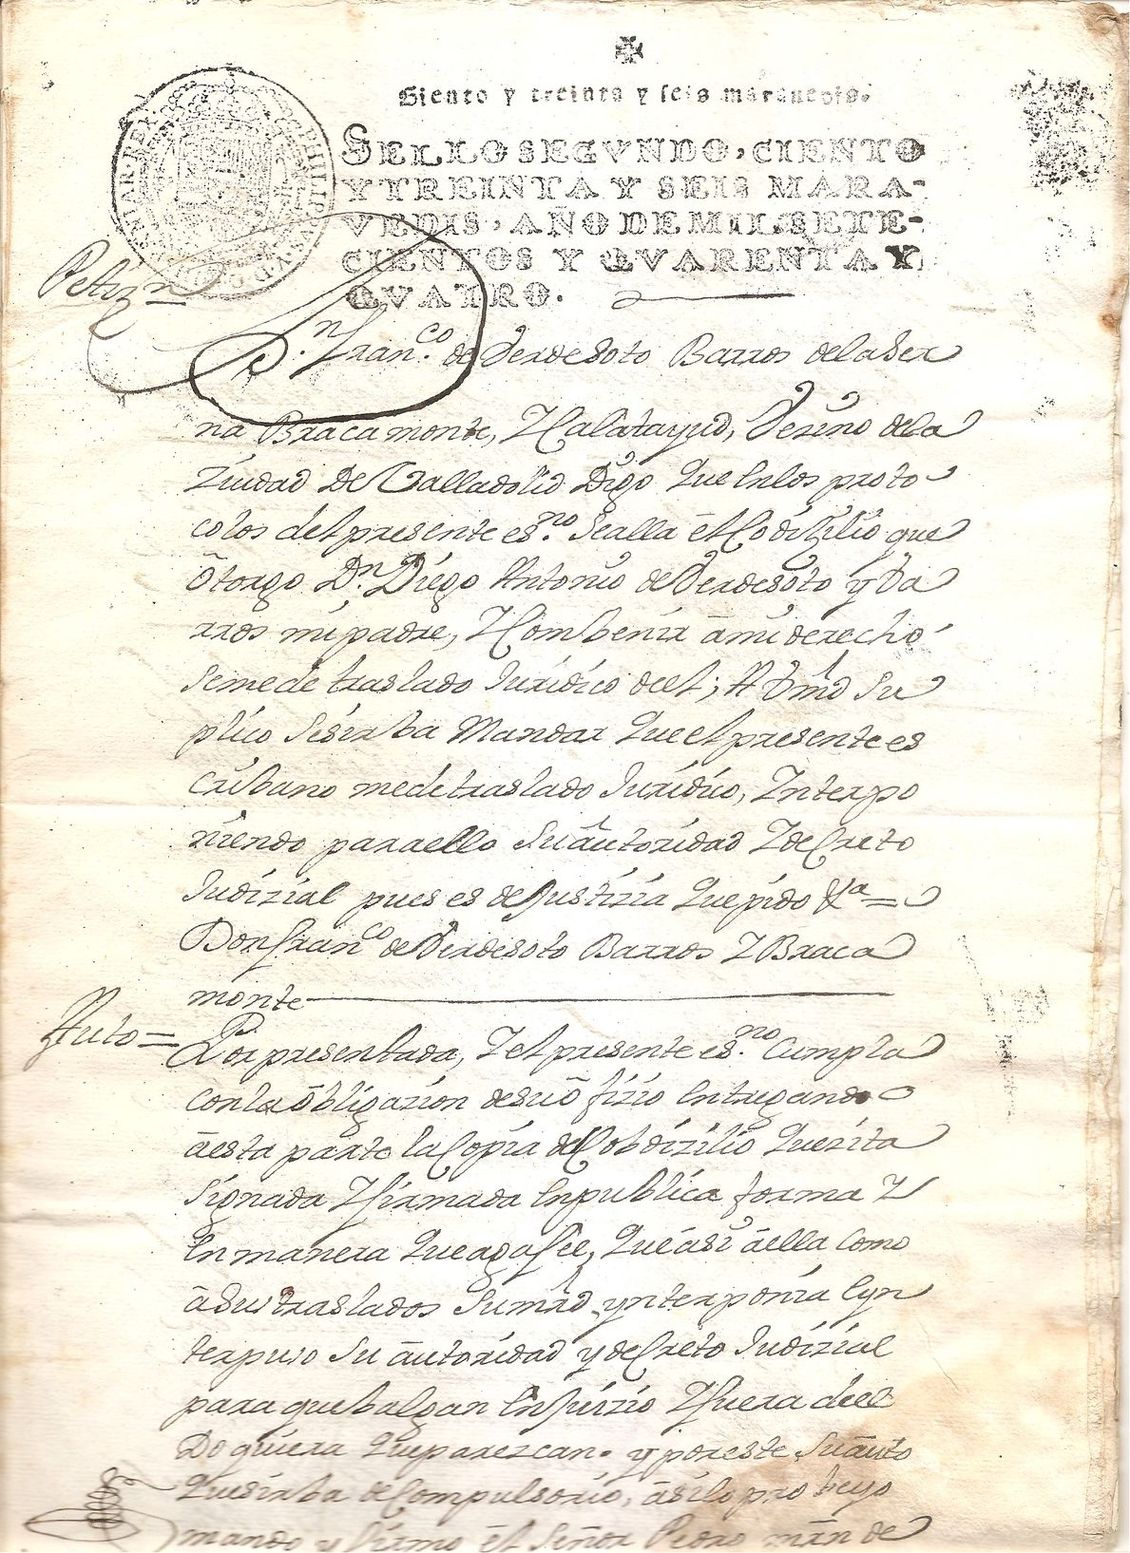 Siento y treinta y seis marauedis.
SELLO SEGVNDO, CIENTO
Y TREINTA Y SEIS MARA-
VEDIS, AÑO DE MIL SETE-
CIENTOS Y QVARENTA Y
QVATRO.
PHILIPPUS V D G
Petizn
Dn. Franco. de Verdesoto Barros dela Ser
na Bracamonte, Y Calatayud, Vezino dela
Ziudad De Valladolid Digo Que Enlos proto
colos del presente esno. Sealla el Codizilio que
otorgo Dn. Diego Antonio de Verdesoto y Ba
rros mi padre, Y Combenir a mi derecho
Seme de traslado Juridico deel; A Vmd Su
plico Sesirba Mandar Que el presente es
cribano mede traslado Juridico, Interpo
niendo paraello Su autoridad Y deCreto
Judizial pues es de Justizia Que pido &a =
Don Franco de Verdesoto Barros Y Braca
monte
Auto =
Por presentada, Y el presente esno. Cumpla
conla obligazion desu ofizio Entregando
aesta parte la Copia del Cobdizilio Quezita
Signada Y firmada Enpublica forma Y
En manera Que aga fee, Que asi aella Como
asus traslados Su mrd ynterponia Eyn
terpuso Su autoridad y deCreto Judizial
para que balgan En Juizio Y fuera deel
Do quiera Que parezcan. y por este Su auto
Que sirba de Compulsorio, asi lo probeyo
mando y firmo el Señor Pedro mrn de